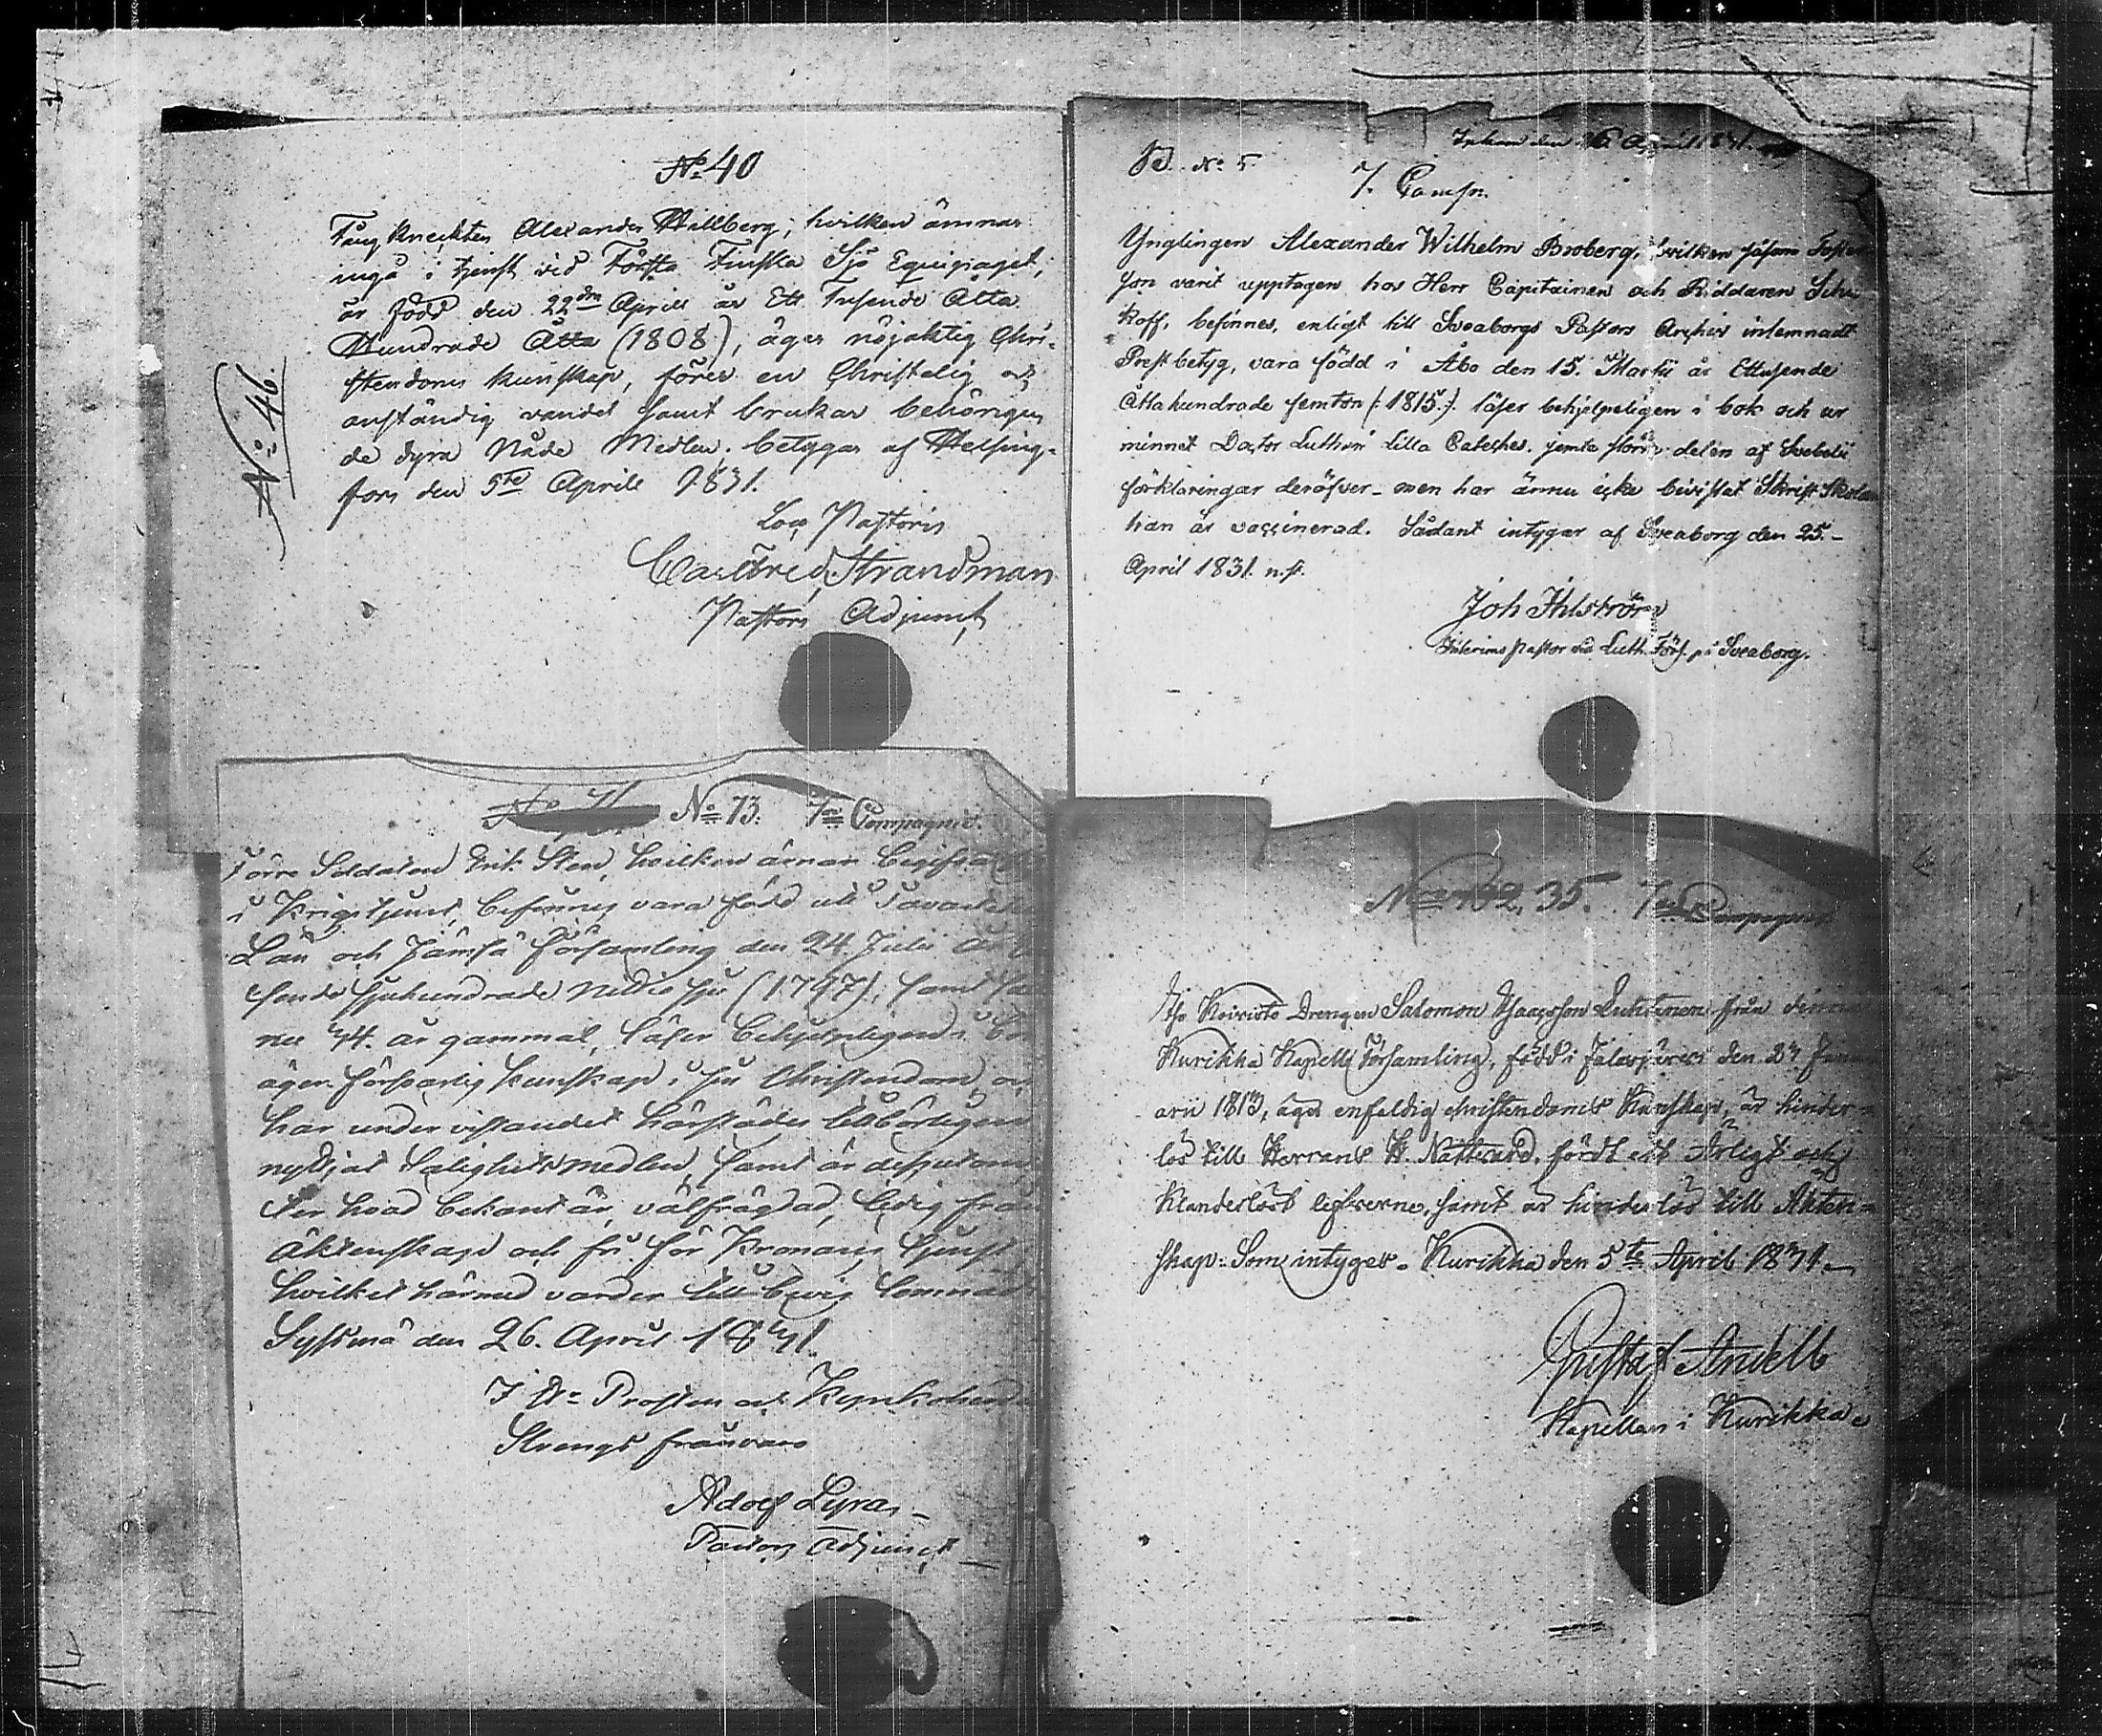 No 40
No: 46.
Tång Kneckten Alexander Hällberg, hvilken ämnar
ingå i tjenst vid Första Finska Sjö Equipaget,
är född den 22dra Aprill år Ett Tusende Åtta
Hundrade Åtta (1808), äger nöjaktig Chri-
stendoms kunskap, förer en Christelig och
anständig vandel samt brukar behörigen
de dyra Nåde Medlen, betygar af Helsing-
fors den 5te Aprill 1831.
Loco Pastoris
Carl Fred. Strandman
Pastors Adjunct
Inkom den 26 April 1831.
B. No 5
7. Comp.
Ynglingen Alexander Wilhelm Broberg, hvilken såsom Foster
son varit upptagen hos Herr Capitainen och Riddaren
koff, befinnes, enligt till Sveaborgs Pastors Archiv inlemnadt
Prestbetyg, vara född i Åbo den 15. Martii år Ettusende
Åttahundrade femton (:1815:). läser behjelpeligen i bok och ur
minnet Doctor Lutheri Lilla Cateches. jemte större delen af Svebelii
förklaringar deröfver - men har ännu icke bivistat Skrift Skolan
han är vaccinerad. Sådant intygar af Sveaborg den 25.-
April 1831. n.st.
Joh Ihlström
Interims Pastor vid Luth. Förs. på Sveaborg.
No 13. 7de Compagniet.
Förre Soldaten Erik Sten, hvilken ämnar begifva
i Krigstjenst, befinnes vara född uti Tavaste
Län och Jämsä Församling den 24. Julii
sende sjuhundrade nittio sju (1797), samt
nu 34. år gammal, läser behjelpligen i
äger försvarlig kunskap i sin Christendom,
har under vistandet härstädes tillbörligen
nyttjat Salighetsmedlen, samt är dessutom,
ter hvad bekant är, välfrägdad, ledig från
äktenskap och fri för Kronans tjenst
hvilket härmed varder till bevis lemnadt
Sysmä den 26. April 1831.
I Hr Prosten och Kyrkoherden
Strengs frånvaro
Adolf Lyra
Pastors Adjunct
35. 7de Compagniet
Koivisto Drengen Salomon Isaacsson Luhtanen från
Kurikka Kapells Församling, född i Jalasjärvi den 27 Janu
arii 1813, äger enfaldig christendoms Kunskap, är hinder-
lös till Herrans H. Nattvard, fördt ett Ärligt och
klanderlöst lefverne, samt är hinderlös till Äkten-
skap: Som intygas. Kurikka den 5te April 1831.
Gustaf Andell
Kapellan i Kurikka